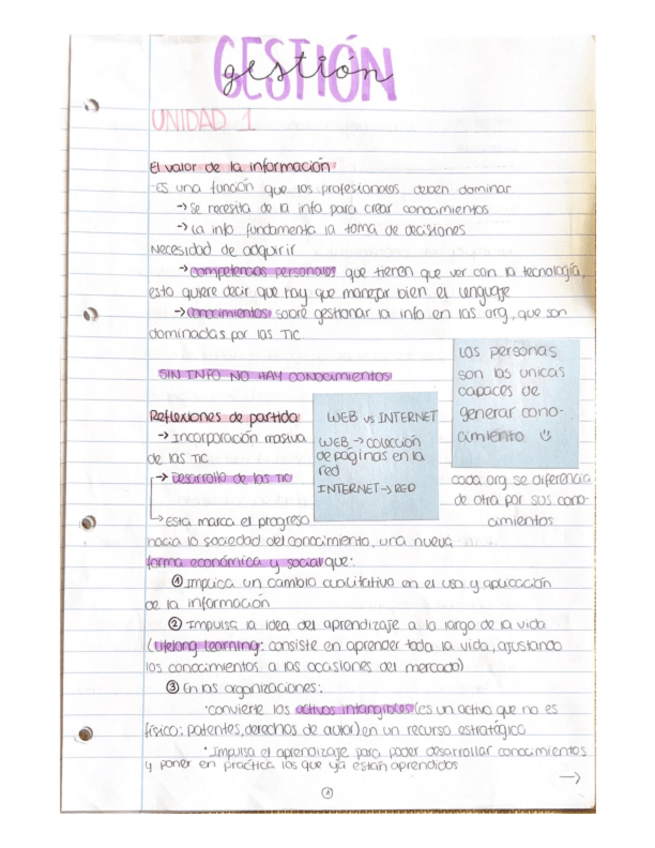 GESTIÓN
gestión
UNIDAD 1
El valor de la información
-Es una función que los profesionales deben dominar
→ Se necesita de la info para crear conocimientos
→ La info fundamenta la toma de decisiones
Necesidad de adquirir
→ competencias personales que tienen que ver con la tecnología,
esto quiere decir que hay que manejar bien el lenguaje
→ conocimientos sobre gestionar la info en las org, que son
dominadas por las TIC
SIN INFO NO HAY CONOCIMIENTOS
Los personas
son las unicas
capaces de
generar cono-
cimiento
cada org se diferencia
de otra por sus cono-
cimientos
Reflexiones de partida
→ Incorporación masiva
de las TIC
→ Desarrollo de las TIC
WEB vs INTERNET
WEB → colección
de páginas en la
red
INTERNET → RED
→ Esta marca el progreso
hacia la sociedad del conocimiento, una nueva
forma económica y social que:
① Implica un cambio cualitativo en el uso y aplicación
de la información
② Impulsa la idea del aprendizaje a lo largo de la vida
(Lifelong learning: consiste en aprender toda la vida, ajustando
los conocimientos a las ocasiones del mercado)
③ En las organizaciones:
·convierte los activos intangibles (es un activo que no es
físico: patentes, derechos de autor) en un recurso estratégico
·Impulsa el aprendizaje para poder desarrollar conocimientos
y poner en práctica los que ya están aprendidos
→
①